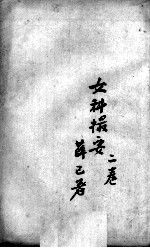 女科撮要 二卷
薛己著